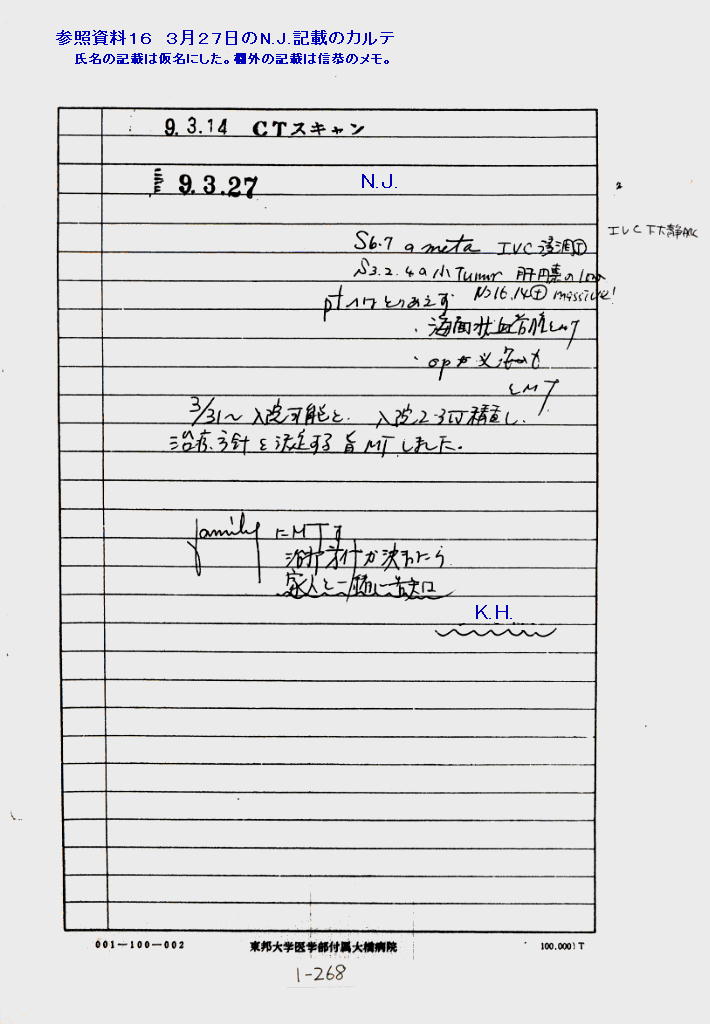 参照資料16 3月27日のN.J.記載のカルテ
氏名の記載は仮名にした。欄外の記載は信恭のメモ。
9.3.14 CTスキャン
9.3.27 N.J.
S6.7 a meta IVC 浸潤(+)
IVC 下大静脈
S3.2.4 a 小 tumor 肝門
No16,14(+) massive!
ptへはとりあえず
・海面状血管腫として
・opが必要
とMT
3/31〜入院可能と、入院2-3日精査し、
治療方針を決定する旨MTしました。
familyにMTす
治療方針が決まったら
家人と一緒に
K.H.
001-100-002 東邦大学医学部付属大橋病院 100.000)T
1-268